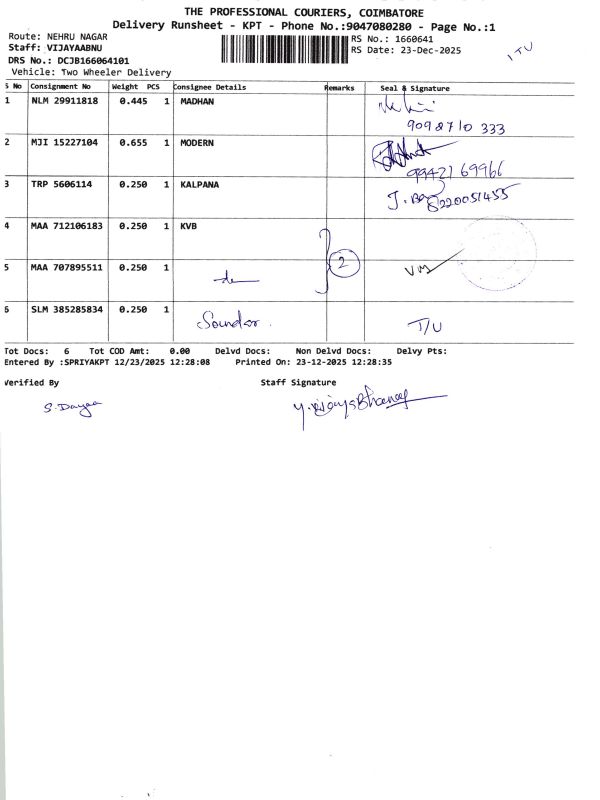 THE PROFESSIONAL COURIERS, COIMBATORE
Delivery Runsheet - KPT - Phone No.:9047080280 - Page No.:1
Route: NEHRU NAGAR
RS No.: 1660641
1TU
Staff: VIJAYAABNU
RS Date: 23-Dec-2025
DRS No.: DCJB166064101
Vehicle: Two Wheeler Delivery
S No Consignment No Weight PCS Consignee Details Remarks Seal & Signature
1 NLM 29911818 0.445 1 MADHAN
9098710 333
2 MJI 15227104 0.655 1 MODERN
99421 69966
3 TRP 5606114 0.250 1 KALPANA
8220051455
4 MAA 712106183 0.250 1 KVB
2
5 MAA 707895511 0.250 1
6 SLM 385285834 0.250 1
Soundar. T/U
Tot Docs: 6 Tot COD Amt: 0.00 Delvd Docs: Non Delvd Docs: Delvy Pts:
Entered By :SPRIYAKPT 12/23/2025 12:28:08 Printed On: 23-12-2025 12:28:35
Verified By Staff Signature
S. Dayaa